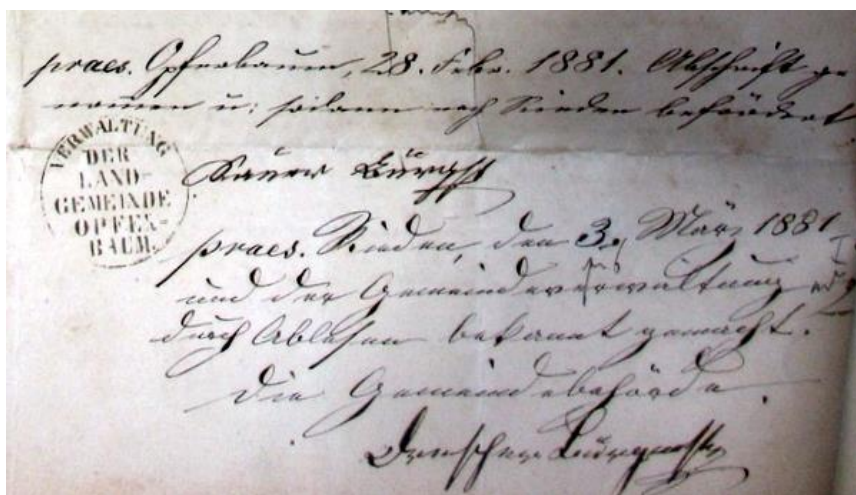 praes. Opferbaum, 28. Febr. 1881. Abschrift ge
nom̄en u: sodann nach Rieden befördert
VERWALTUNG
DER
LAND-
GEMEINDE
OPFER-
BAUM.
Sauer Bürgst
praes. Rieden, den 3. März 1881
und der Gemeindeverwaltung
durch Ablesen bekannt gemacht.
Die Gemeindebehörde.
Drescher Bürgermstr